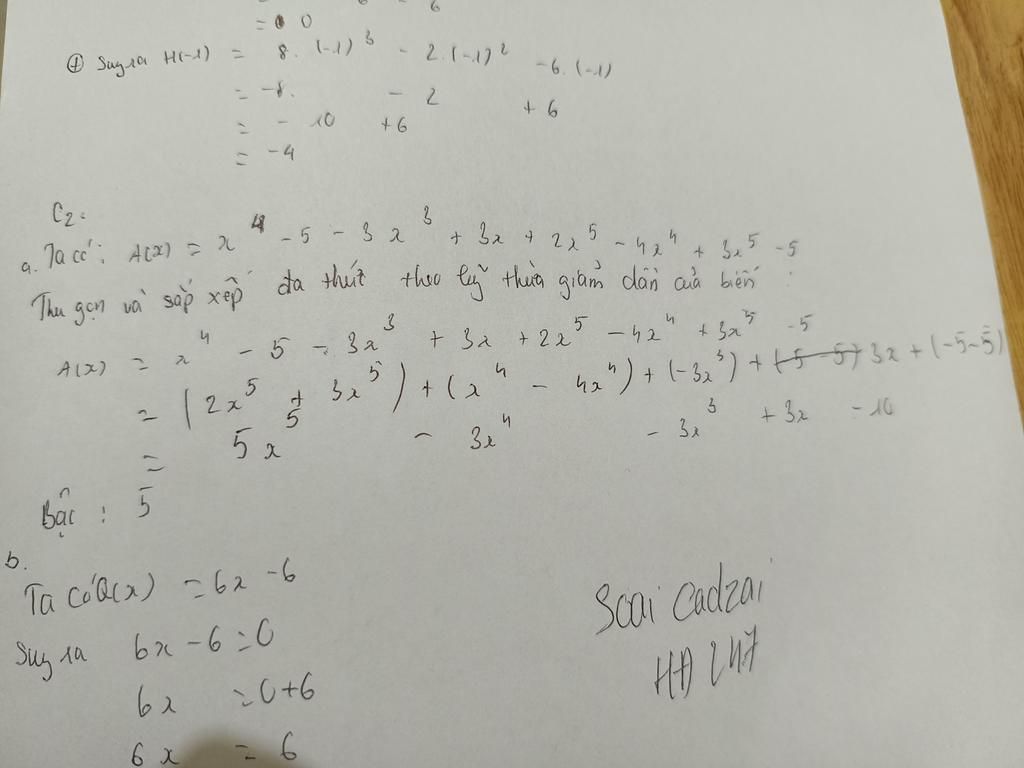 = 0
⊕ Suy ra H(-1) = 8 . (-1)³ - 2.(-1)² - 6.(-1)
= -8. - 2 + 6
= - 10 + 6
= -4
C2:
a. Ta có: A(x) = x⁴ - 5 - 3x³ + 3x + 2x⁵ - 4x⁴ + 3x⁵ - 5
Thu gọn và sắp xếp đa thức theo luỹ thừa giảm dần của biến :
A(x) = x⁴ - 5 - 3x³ + 3x + 2x⁵ - 4x⁴ + 3x⁵ - 5
= (2x⁵ + 3x⁵) + (x⁴ - 4x⁴) + (-3x³) + (-5 - 5) 3x + (-5-5)
= 5x⁵ - 3x⁴ - 3x³ + 3x - 10
Bậc : 5
b.
Ta có Q(x) = 6x - 6
Suy ra 6x - 6 = 0
6x = 0+6
6x = 6
Soai Cadzai
HĐ 247